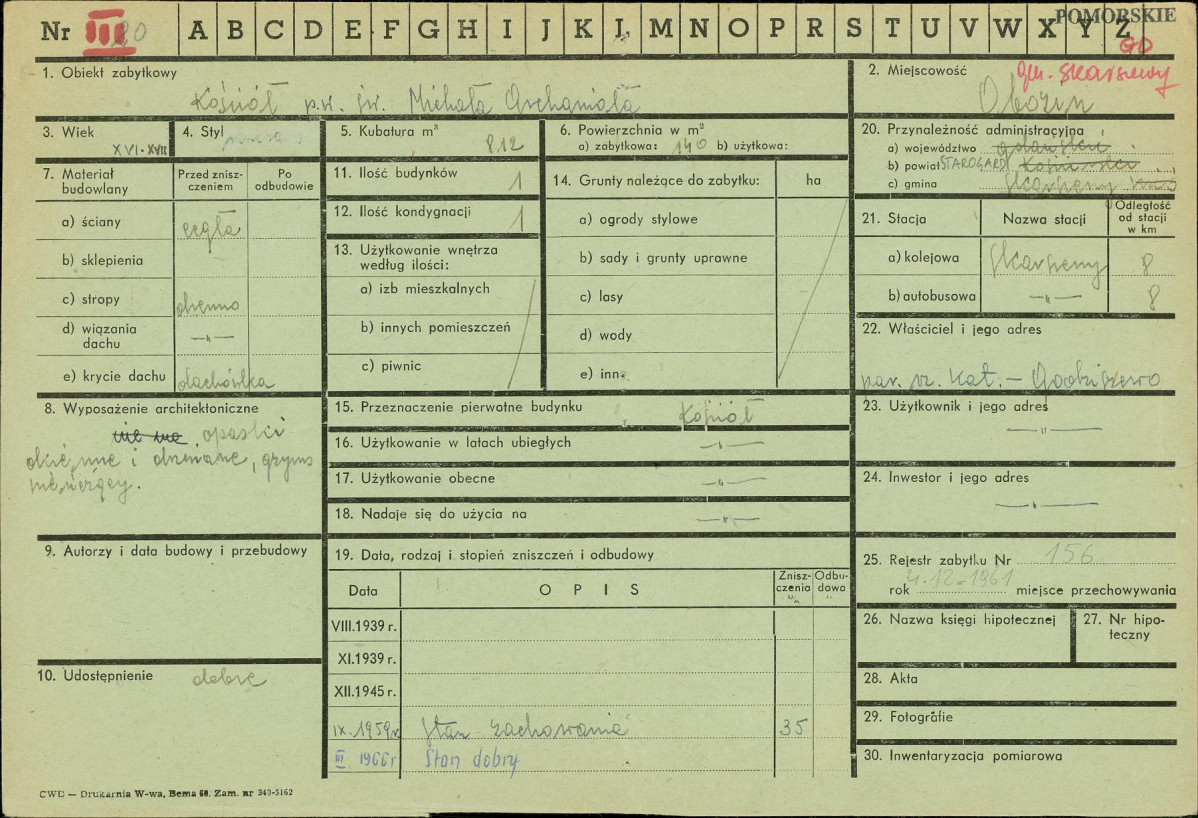 POMORSKIE
Nr III 20 A B C D E F G H I J K L M N O P R S T U V W X Y Z
GD
1. Obiekt zabytkowy
Kościół p.w. św. Michała Archanioła
2. Miejscowość
gm. Skarszewy
Obozin
3. Wiek
XVI-XVII
4. Styl
5. Kubatura m³
812
6. Powierzchnia w m²
a) zabytkowa: 140 b) użytkowa:
7. Materiał budowlany
Przed znisz-
czeniem
Po
odbudowie
a) ściany cegła
b) sklepienia
c) stropy drewno
d) wiązania
dachu —"—
e) krycie dachu dachówka
8. Wyposażenie architektoniczne
nie ma opaski
okienne i drzwiane, gzyms
9. Autorzy i data budowy i przebudowy
10. Udostępnienie dobre
11. Ilość budynków 1
12. Ilość kondygnacji 1
13. Użytkowanie wnętrza
według ilości:
a) izb mieszkalnych
b) innych pomieszczeń
c) piwnic
14. Grunty należące do zabytku: ha
a) ogrody stylowe
b) sady i grunty uprawne
c) lasy
d) wody
e) inne
15. Przeznaczenie pierwotne budynku Kościół
16. Użytkowanie w latach ubiegłych —"—
17. Użytkowanie obecne —"—
18. Nadaje się do użycia na —"—
19. Data, rodzaj i stopień zniszczeń i odbudowy
Data OPIS Znisz-
czenia
% Odbu-
dowa
%
VIII.1939 r.
XI.1939 r.
XII.1945 r.
IX.1959r. Stan zachowania 35
III 1966r Stan dobry
20. Przynależność administracyjna
a) województwo gdańskie
b) powiat STAROGARD Kościerski
c) gmina Skarszewy
21. Stacja Nazwa stacji Odległość
od stacji
w km
a) kolejowa Skarszewy 8
b) autobusowa —"— 8
22. Właściciel i jego adres
par. rz. kat. — Godziszewo
23. Użytkownik i jego adres
—"—
24. Inwestor i jego adres
—"—
25. Rejestr zabytku Nr 156
rok 4.12-1961 miejsce przechowywania
26. Nazwa księgi hipotecznej
27. Nr hipo-
teczny
28. Akta
29. Fotografie
30. Inwentaryzacja pomiarowa
CWD — Drukarnia W-wa, Bema 60. Zam. nr 349-5162